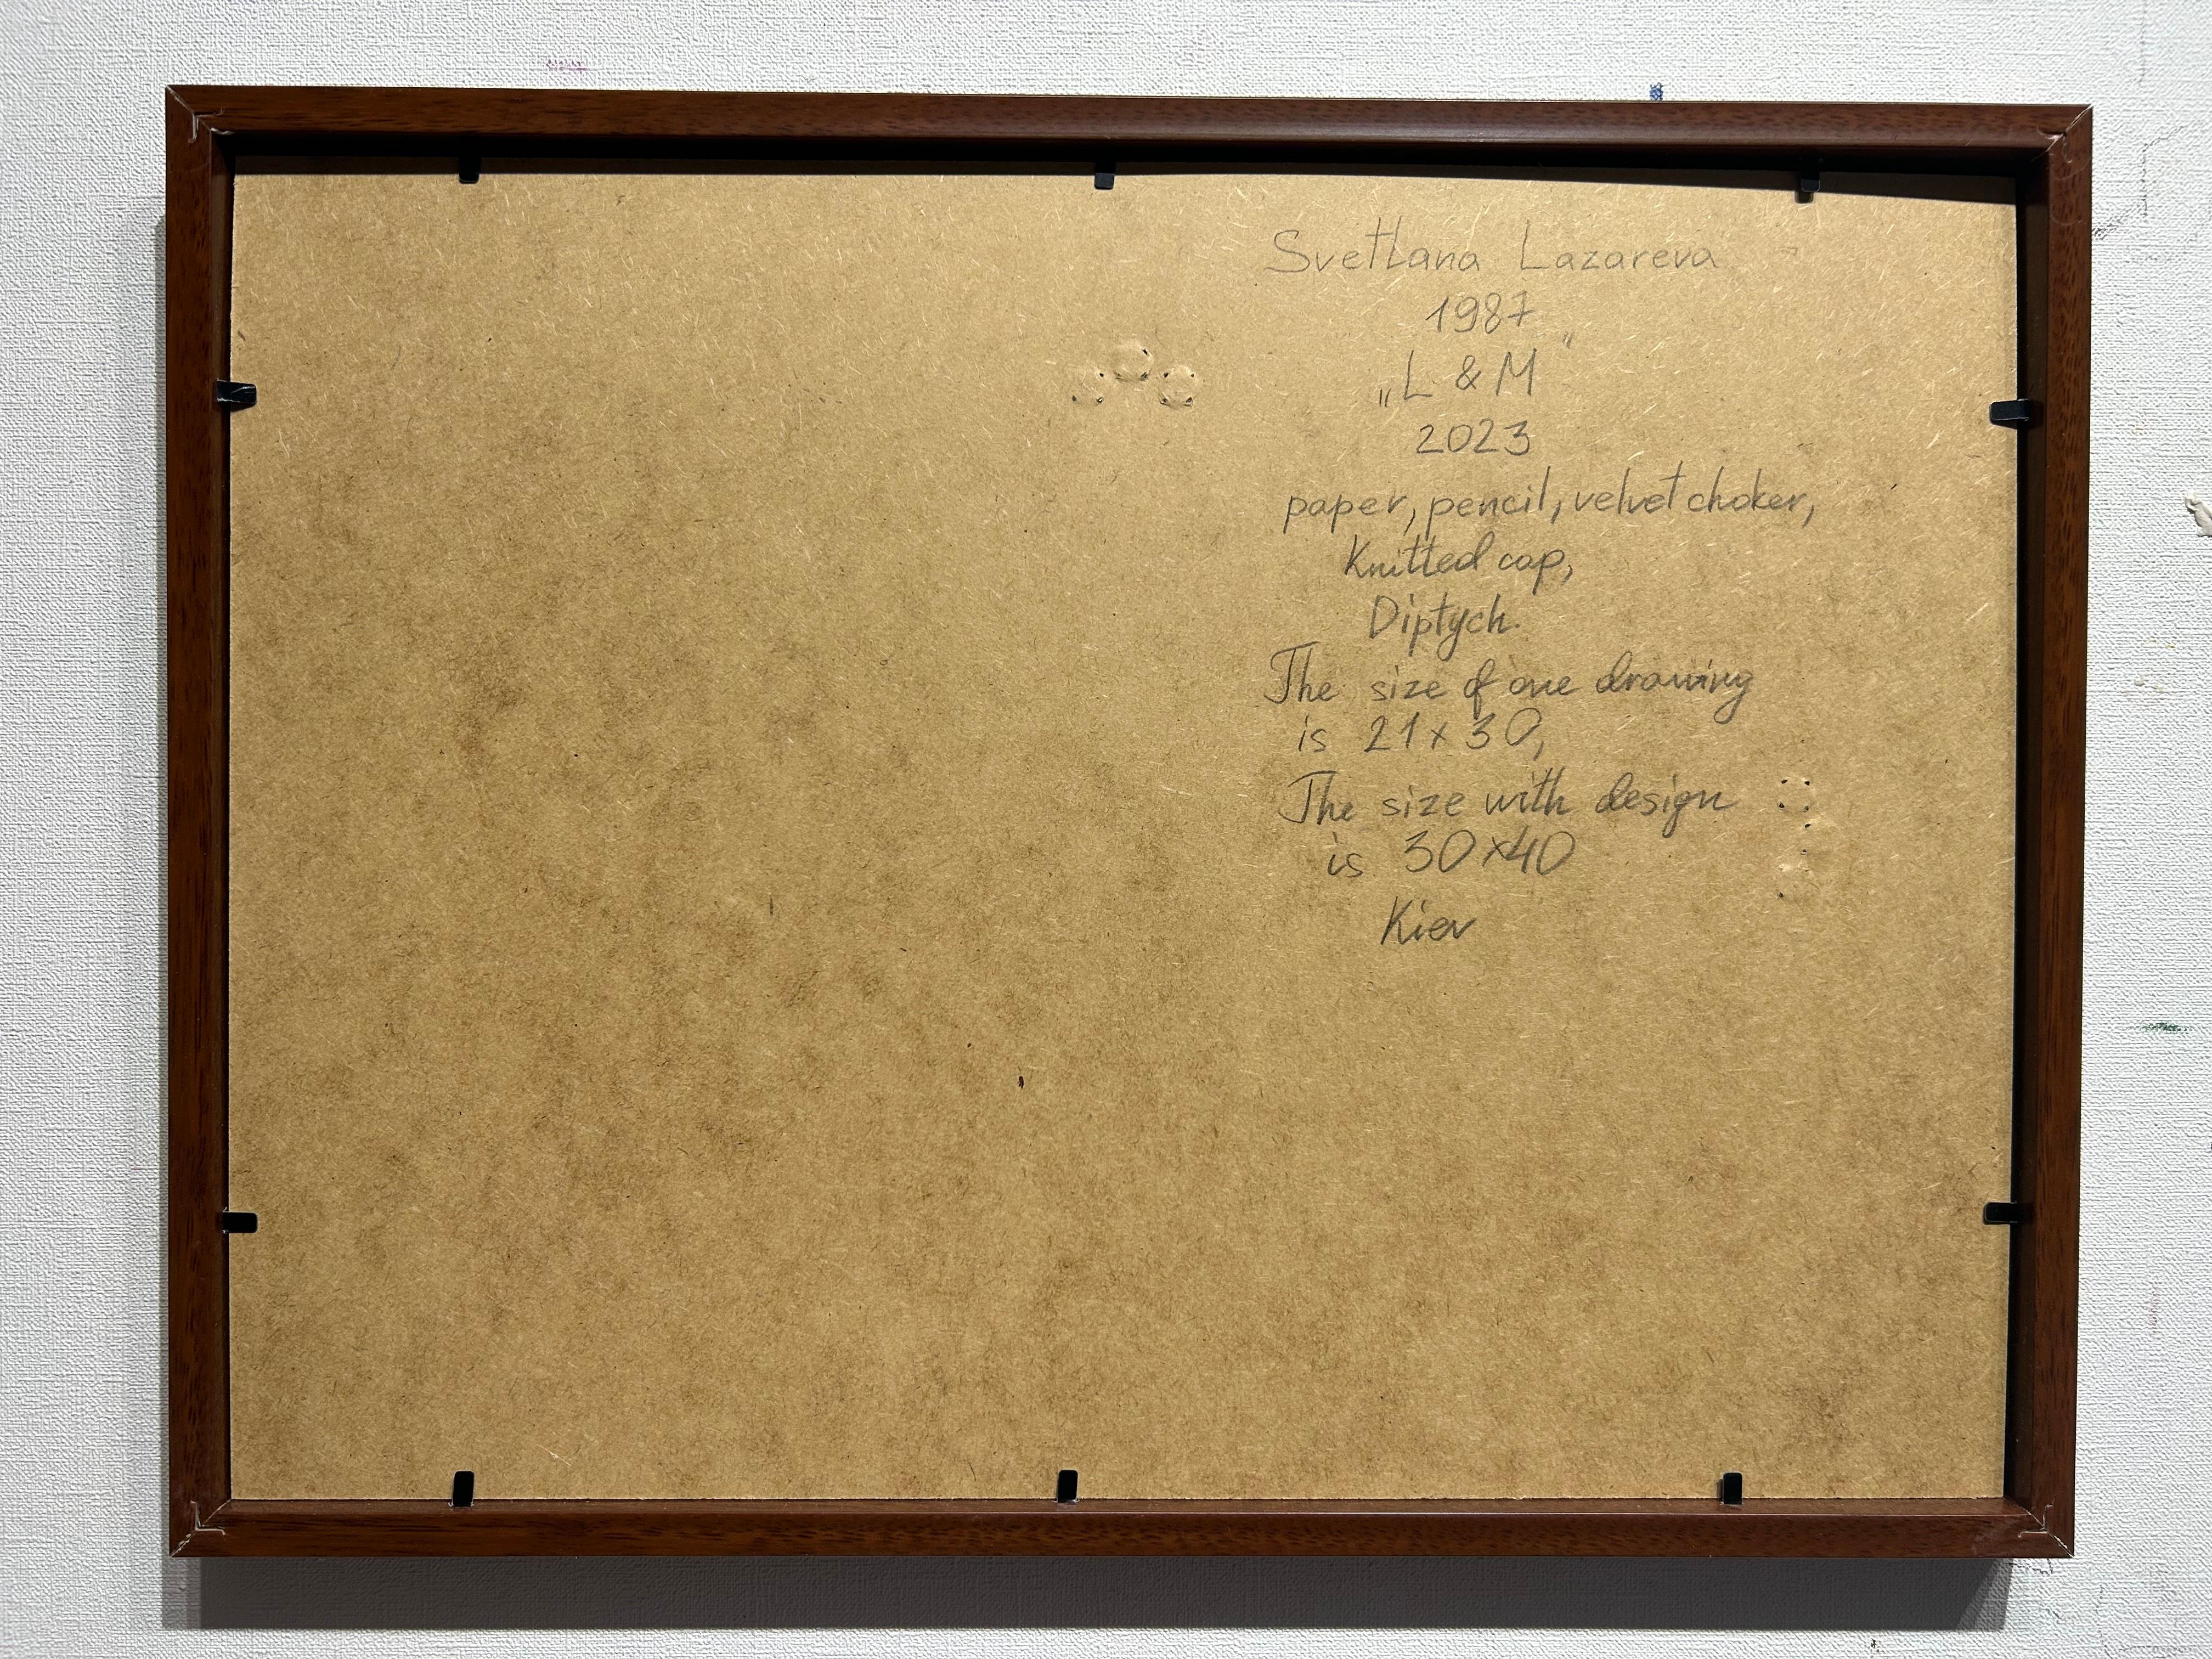 Svetlana Lazareva
1987
„L & M"
2023
paper, pencil, velvet choker,
Knitted cap,
Diptych.
The size of one drawing
is 21x30,
The size with design
is 30x40
Kiev